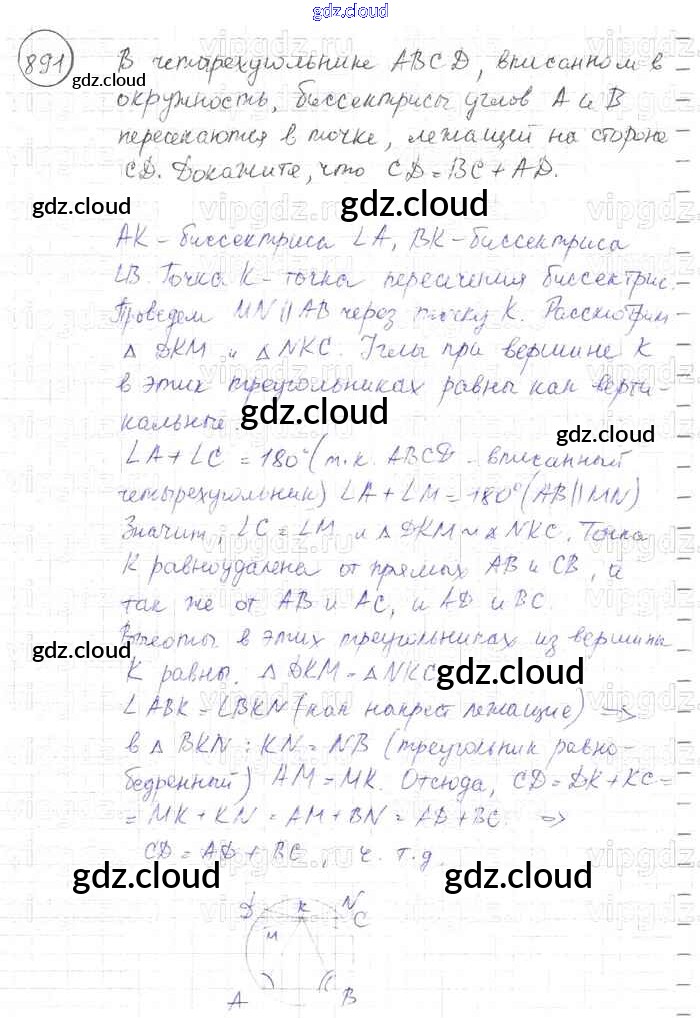 gdz.cloud
891
gdz.cloud
В четырехугольнике ABCD, вписанном в
окружность, биссектрисы углов A и B
пересекаются в точке, лежащей на стороне
CD. Докажите, что CD = BC + AD.
gdz.cloud
gdz.cloud
AK - биссектриса ∠A, BK - биссектриса
∠B. Точка K - точка пересечения биссектрис.
Проведем MN || AB через точку K. Рассмотрим
△ DKM и △ NKC. Углы при вершине K
в этих треугольниках равны как верти-
кальные.
gdz.cloud
gdz.cloud
∠A + ∠C = 180° (т.к. ABCD - вписанный
четырехугольник) ∠A + ∠M = 180° (AB || MN)
Значит, ∠C = ∠M и △ DKM ~ △ NKC. Точка
K равноудалена от прямых AB и CB, а
так же от AB и AC, и AD и BC.
Высоты в этих треугольниках из вершины
gdz.cloud
K равны. △ DKM = △ NKC
gdz.cloud
∠ ABK = ∠BKN (как накрест лежащие) =>
в △ BKN : KN = NB (треугольник равно-
бедренный) AM = MK. Отсюда, CD = DK + KC =
= MK + KN = AM + BN = AD + BC. =>
CD = AD + BC, ч. т. д.
gdz.cloud
gdz.cloud
D K N
C
M
A B
gdz.cloud